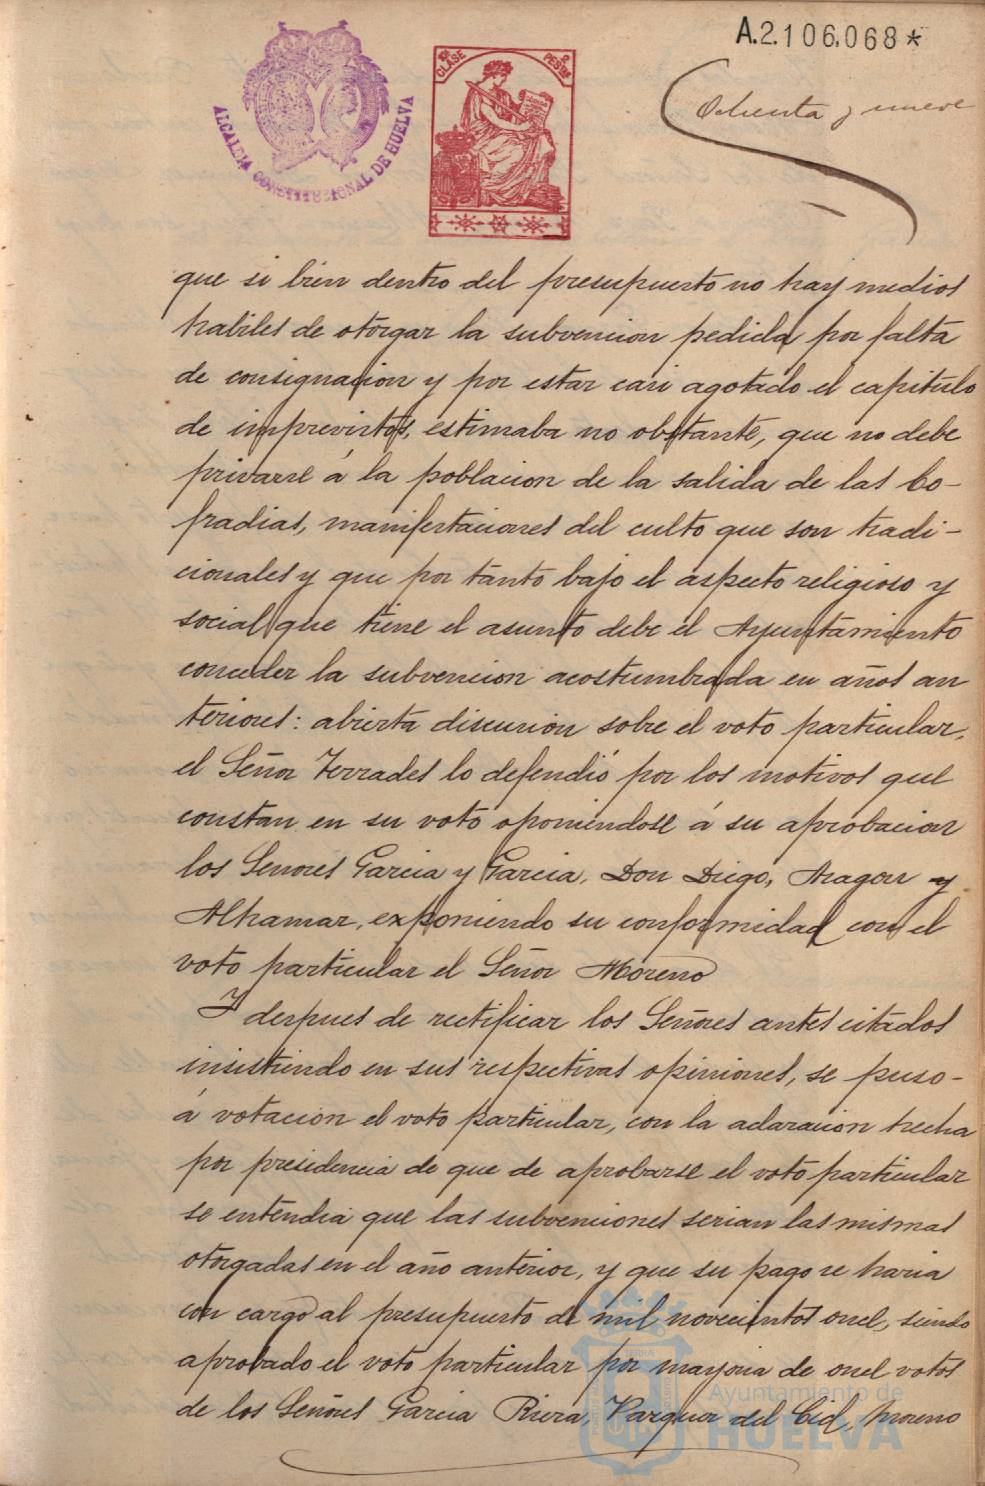 A.2.106.068*
ALCALDIA CONSTITUCIONAL DE HUELVA
CLASE
PESTAS
Ochenta y nueve
que si bien dentro del presupuesto no hay medios
habiles de otorgar la subvencion pedida por falta
de consignacion y por estar casi agotado el capitulo
de imprevistos, estimaba no obstante, que no debe
privarse á la poblacion de la salida de las Co-
fradias, manifestaciones del culto que son tradi-
cionales y que por tanto bajo el aspecto religioso y
social que tiene el asunto debe el Ayuntamiento
conceder la subvencion acostumbrada en años an
teriores: abierta discusion sobre el voto particular,
el Señor Terrades lo defendió por los motivos que
constan en su voto oponiendose á su aprobacion
los Señores Garcia y Garcia, Don Diego, Aragon y
Alhamar, exponiendo su conformidad con el
voto particular el Señor Moreno
Y despues de rectificar los Señores antes citados
insistiendo en sus respectivas opiniones, se puso-
á votacion el voto particular, con la aclaracion hecha
por presidencia de que de aprobarse el voto particular
se entendia que las subvenciones serian las mismas
otorgadas en el año anterior, y que su pago se haria
con cargo al presupuesto de mil novecientos once, siendo
aprobado el voto particular por mayoria de once votos
de los Señores Garcia Riera, Vazquez del Cid, Moreno
Ayuntamiento de
HUELVA